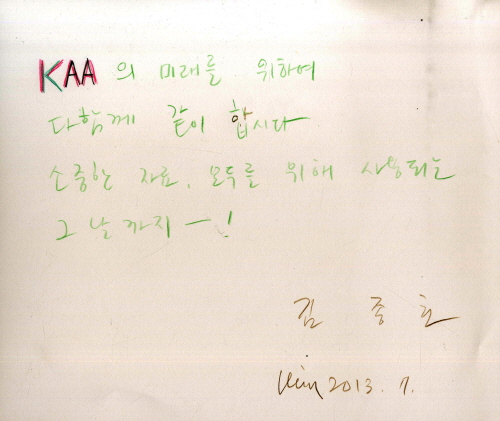 KAA의 미래를 위하여
다함께 같이 합시다
소중한 자료, 모두를 위해 사용되는
그 날까지 — !
김 종 호
Kim 2013. 7.